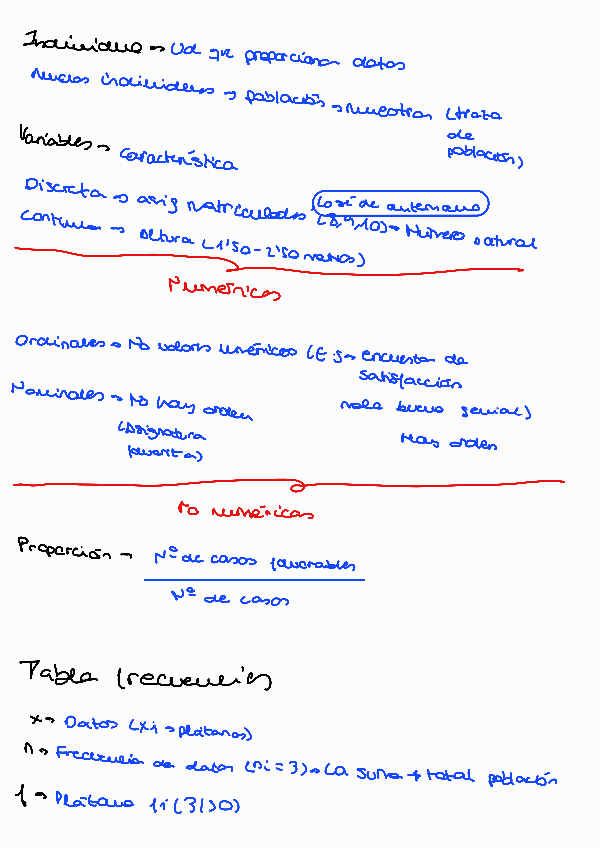 Individuo → Ud que proporcionan datos
Muchos individuos → población → muestra (trozo de población)
Variables → Característica
Discreta → asig matriculados (8, 9, 10) → Número natural
Lo sé de antemano
Continua → altura (1'50 - 2'50 metros)
Numéricas
Ordinales → No valores numéricos (Ej → encuesta de satisfacción
malo bueno genial)
Hay orden
Nominales → No hay orden
(Asignatura favorita)
No numéricas
Proporción → Nº de casos favorables
Nº de casos
Tabla frecuencias
x → Datos (xi → plátanos)
n → Frecuencia de datos (ni = 3) → La suma → total población
f → Plátano fi (3/30)